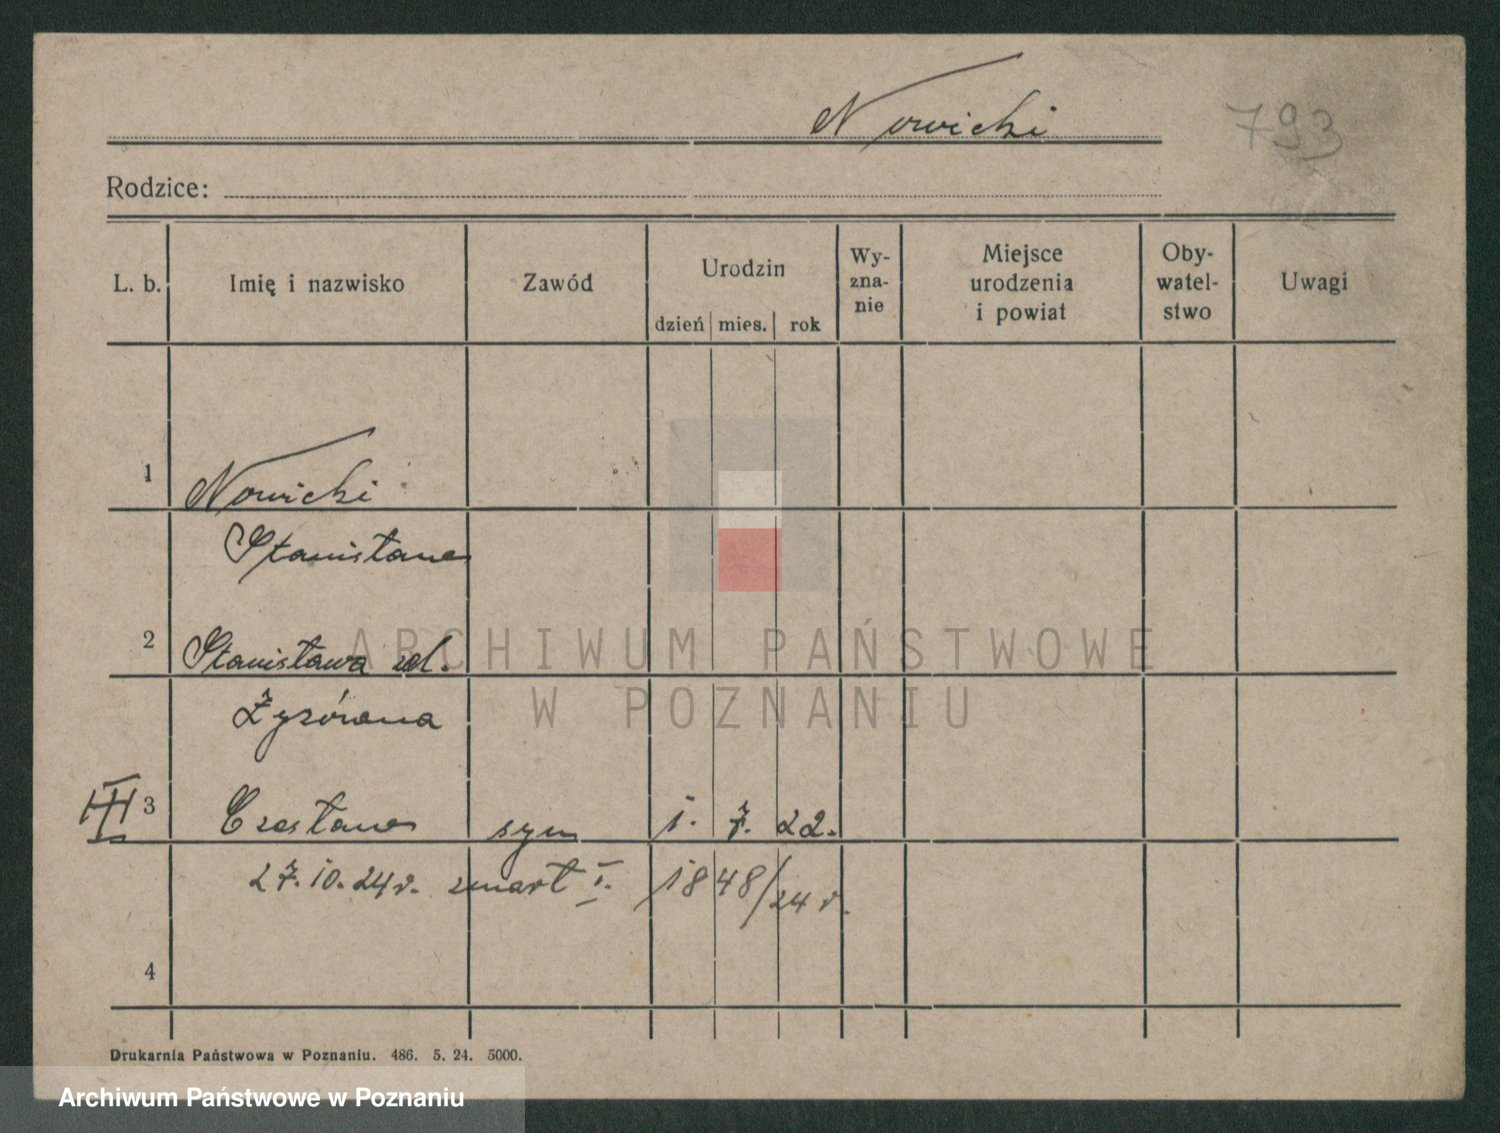 Nowicki
793
Rodzice:
L. b. Imię i nazwisko Zawód Urodzin dzień mies. rok Wy-zna-nie Miejsce urodzenia i powiat Oby-watel-stwo Uwagi
1 Nowicki
Stanisław
2 Stanisława
3 Czesław syn 1. 7. 22.
27.10.24r. zmarł I. 1848/24 r.
4
Drukarnia Państwowa w Poznaniu. 486. 5. 24. 5000.
ARCHIWUM PAŃSTWOWE
W POZNANIU
Archiwum Państwowe w Poznaniu